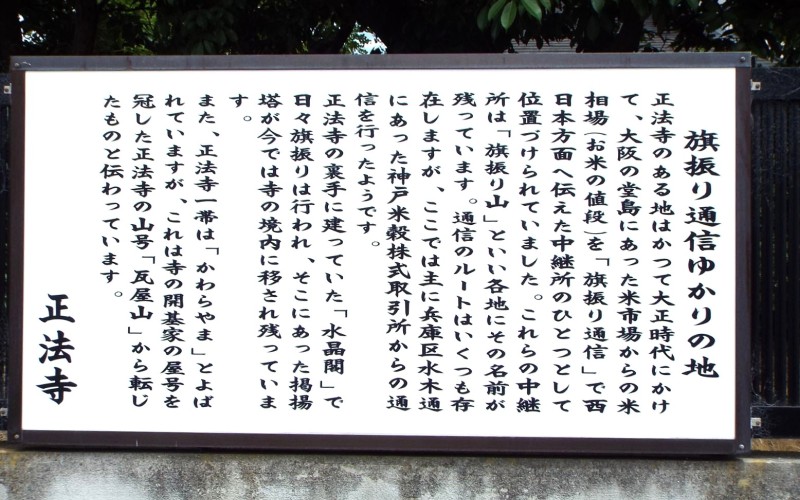 旗振り通信ゆかりの地
正法寺のある地はかつて大正時代にかけ
て、大阪の堂島にあった米市場からの米
相場(お米の値段)を「旗振り通信」で西
日本方面へ伝えた中継所のひとつとして
位置づけられていました。これらの中継
所は「旗振り山」といい各地にその名前が
残っています。通信のルートはいくつも存
在しますが、ここでは主に兵庫区水木通
にあった神戸米穀株式取引所からの通
信を行ったようです。
正法寺の裏手に建っていた「水晶閣」で
日々旗振りは行われ、そこにあった掲揚
塔が今では寺の境内に移され残っていま
す。
また、正法寺一帯は「かわらやま」とよば
れていますが、これは寺の開基家の屋号を
冠した正法寺の山号「瓦屋山」から転じ
たものと伝わっています。
正法寺